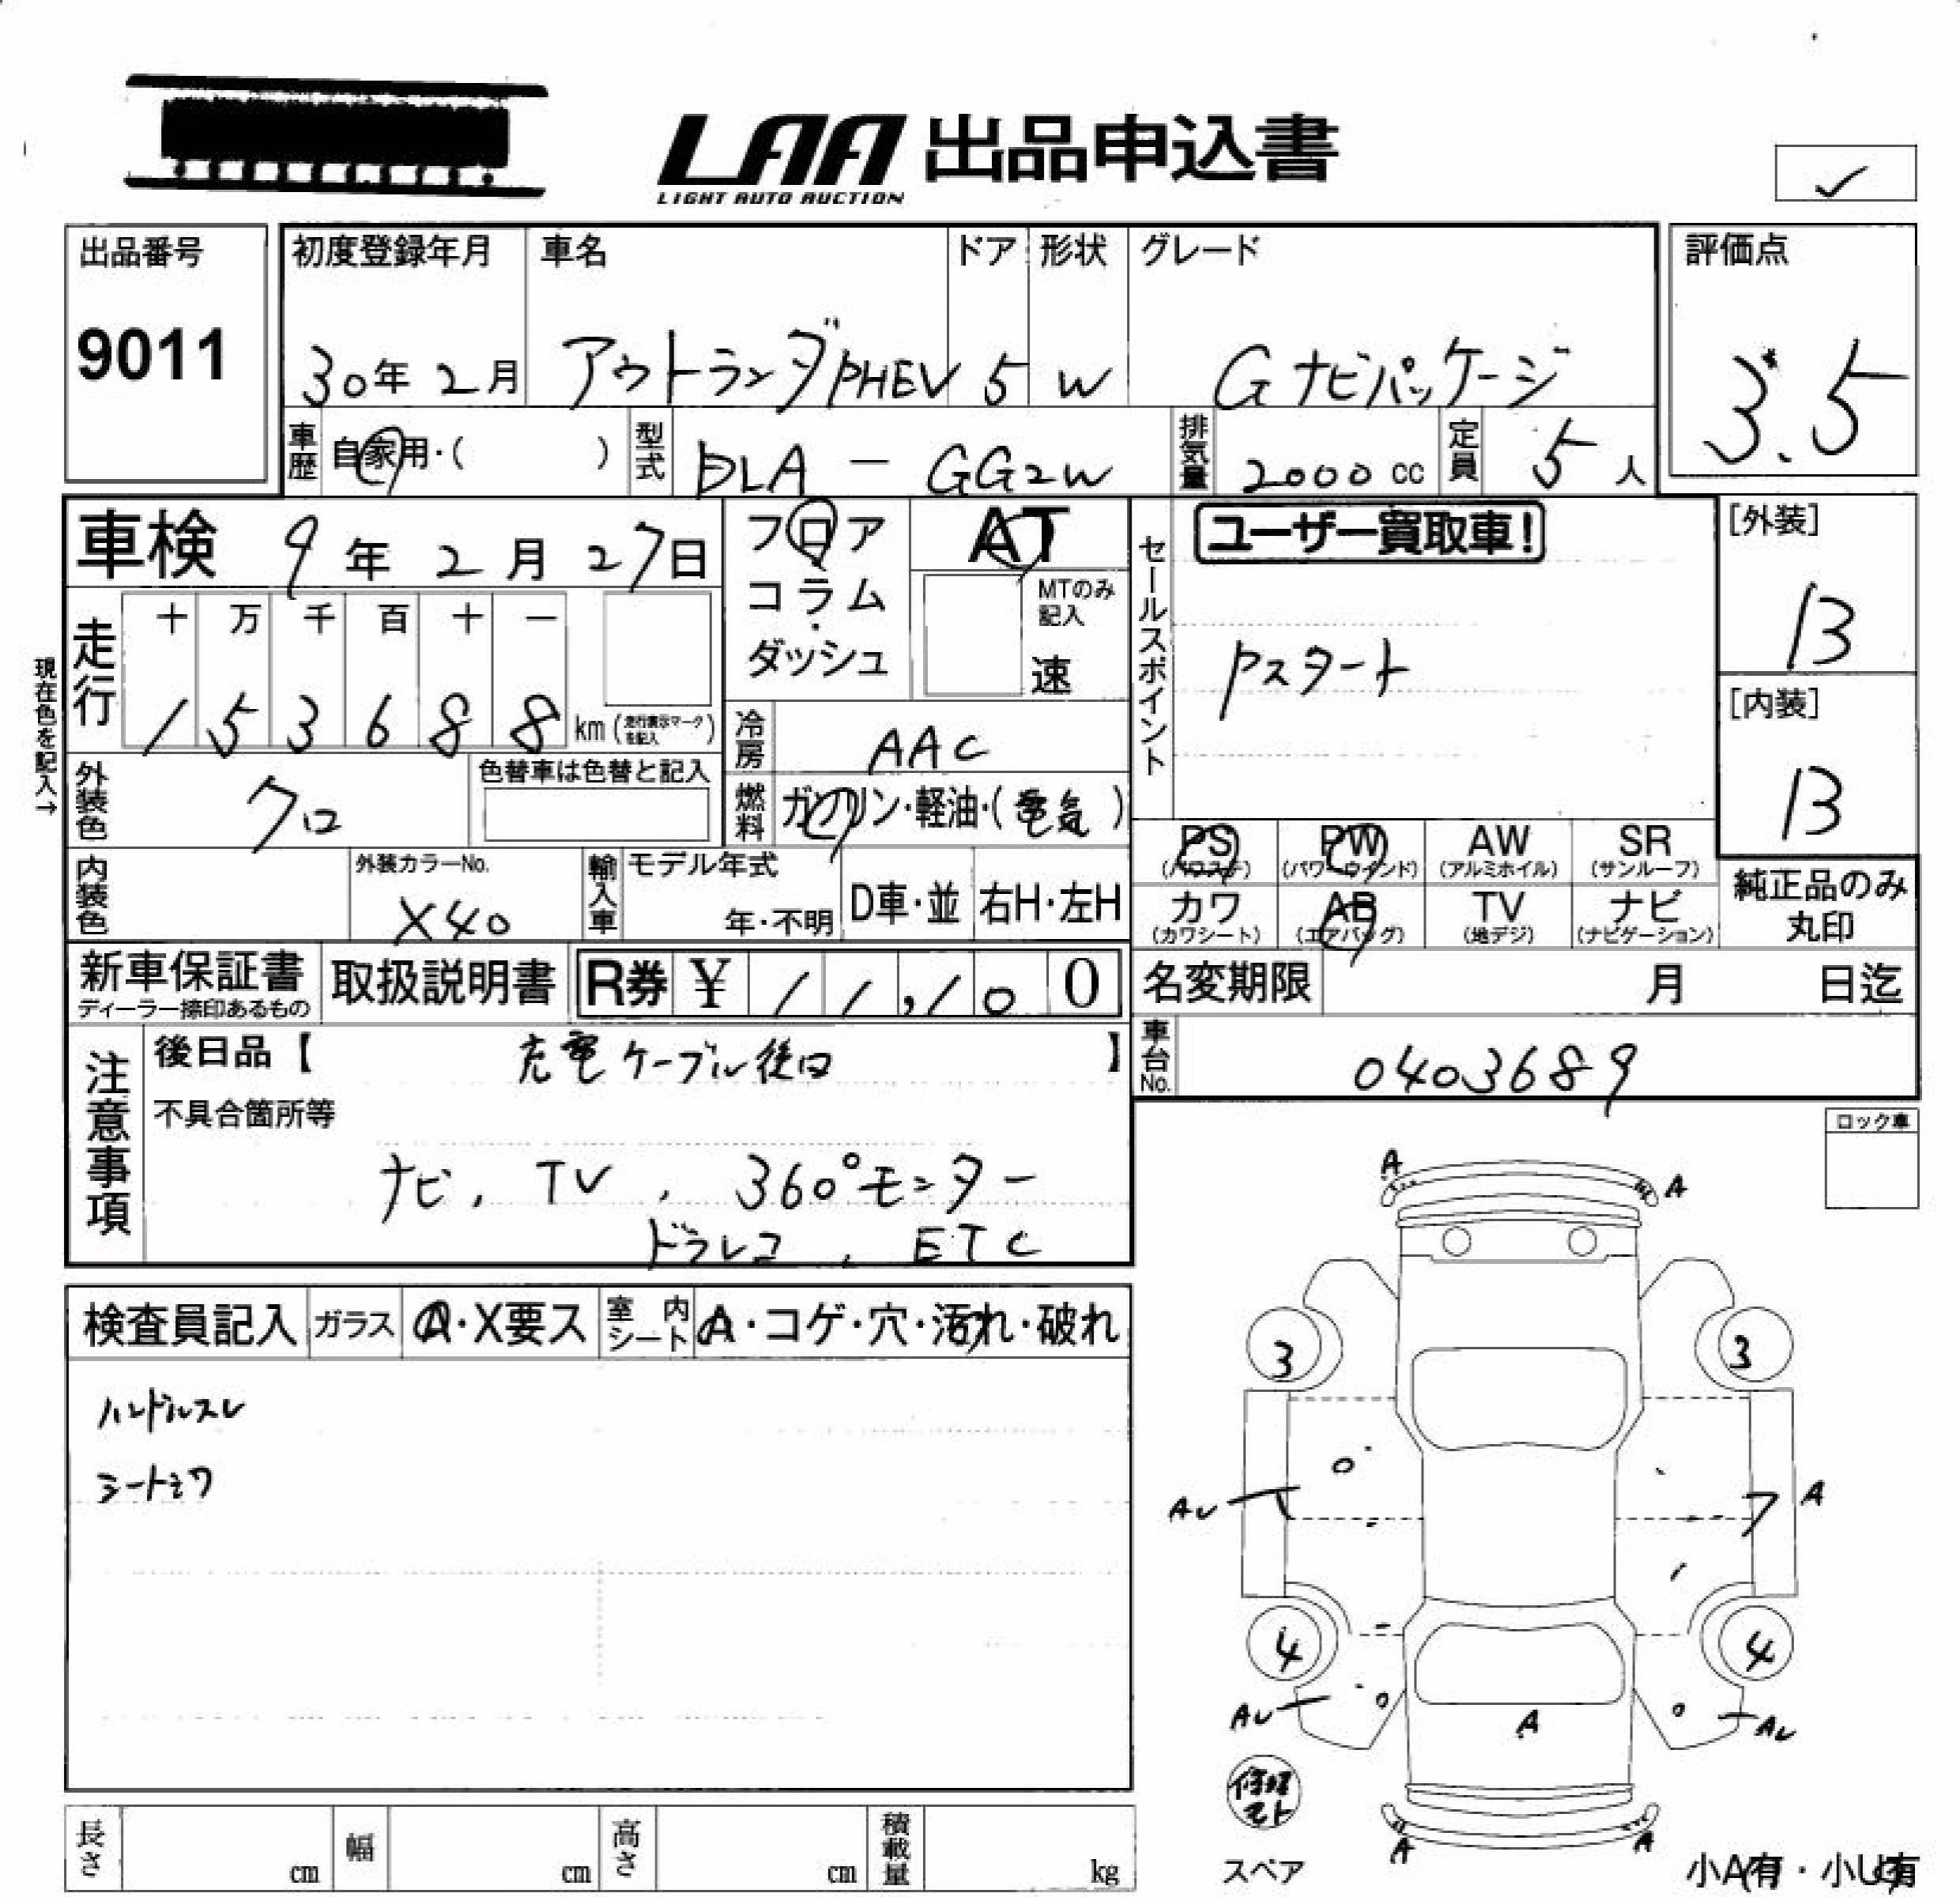 LAA 出品申込書
LIGHT AUTO AUCTION
✓
出品番号
9011
初度登録年月
30年 2月
車名
アウトランダPHEV
ドア
5
形状
W
グレード
Gナビパッケージ
評価点
3.5
車歴
自家用・( )
型式
DLA - GG2W
排気量
2000 cc
定員
5 人
車検 9年 2月 27日
フロア
コラム
・
ダッシュ
AT
MTのみ
記入
速
セールスポイント
ユーザー買取車!
Pスタート
[外装]
B
[内装]
B
現在色を記入→
走行
十 万 千 百 十 一
1 5 3 6 8 8 km (走行表示マークを記入)
冷房
AAC
燃料
ガソリン・軽油・(電気)
外装色
クロ
色替車は色替と記入
内装色
外装カラーNo.
X40
輸入車
モデル年式
年・不明
D車・並
右H・左H
PS
(パワステ)
PW
(パワーウインド)
AW
(アルミホイル)
SR
(サンルーフ)
カワ
(カワシート)
AB
(エアバッグ)
TV
(地デジ)
ナビ
(ナビゲーション)
純正品のみ
丸印
新車保証書
ディーラー捺印あるもの
取扱説明書
R券 ¥ 1 1,1 0 0
名変期限 月 日迄
車台No.
0403689
注意事項
後日品【 充電ケーブル後日 】
不具合箇所等
ナビ, TV, 360°モニター
ドラレコ, ETC
ロック車
検査員記入
ガラス
A・X要ス
室内シート
A・コゲ・穴・汚れ・破れ
ハンドルスレ
シートシワ
A
A
3
3
AU
A
4
4
AU
AU
A
A
A
修理
キット
スペア
小A有・小U有
長さ cm
幅 cm
高さ cm
積載量 kg